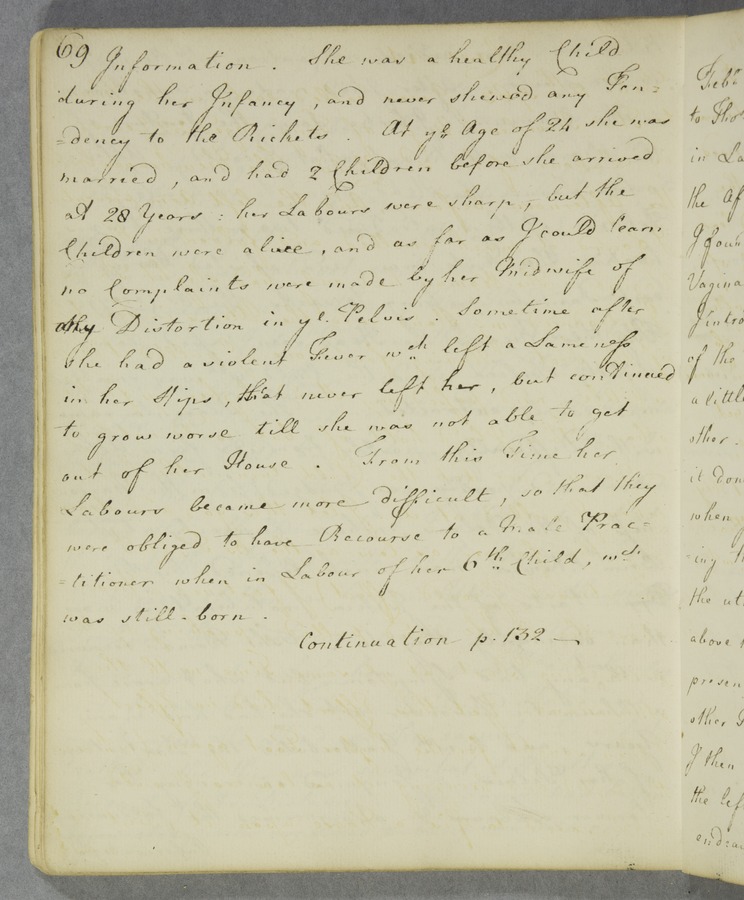 69 Information . She was a healthy Child
during her Infancy , and never shewed any Ten=
=dency to the Rickets . At ye. Age of 24 she was
married , and had 2 Children before she arrived
at 28 Years : her Labours were sharp , but the
Children were alive , and as far as I could learn
no Complaints were made by her Midwife of
any Distortion in ye. Pelvis . Sometime after
she had a violent Fever wch left a Lameness
in her Hips , that never left her , but continued
to grow worse till she was not able to get
out of her House . From this Time her
Labours became more difficult , so that they
were obliged to have Recourse to a Male Prac=
=titioner when in Labour of her 6th Child , wch
was still-born .
Continuation p. 132 —
Feb
to Tho
in La
the Af
I foun
Vagina
I intro
of the
a little
other .
it don
when
=ing
the ut
above
presen
other
I then
the lef
endea